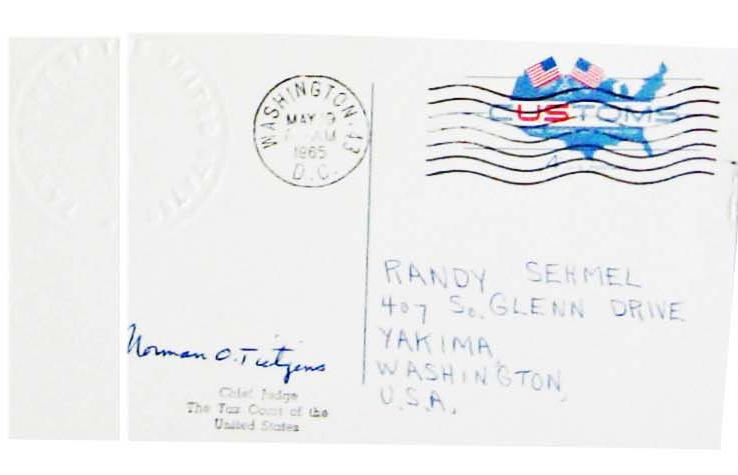 WASHINGTON · 43
MAY 9
AM
1965
D.C.
CUSTOMS
RANDY SEHMEL
407 So. GLENN DRIVE
YAKIMA,
WASHINGTON,
U.S.A.
Norman O. Tietjens
Chief Judge
The Tax Court of the
United States